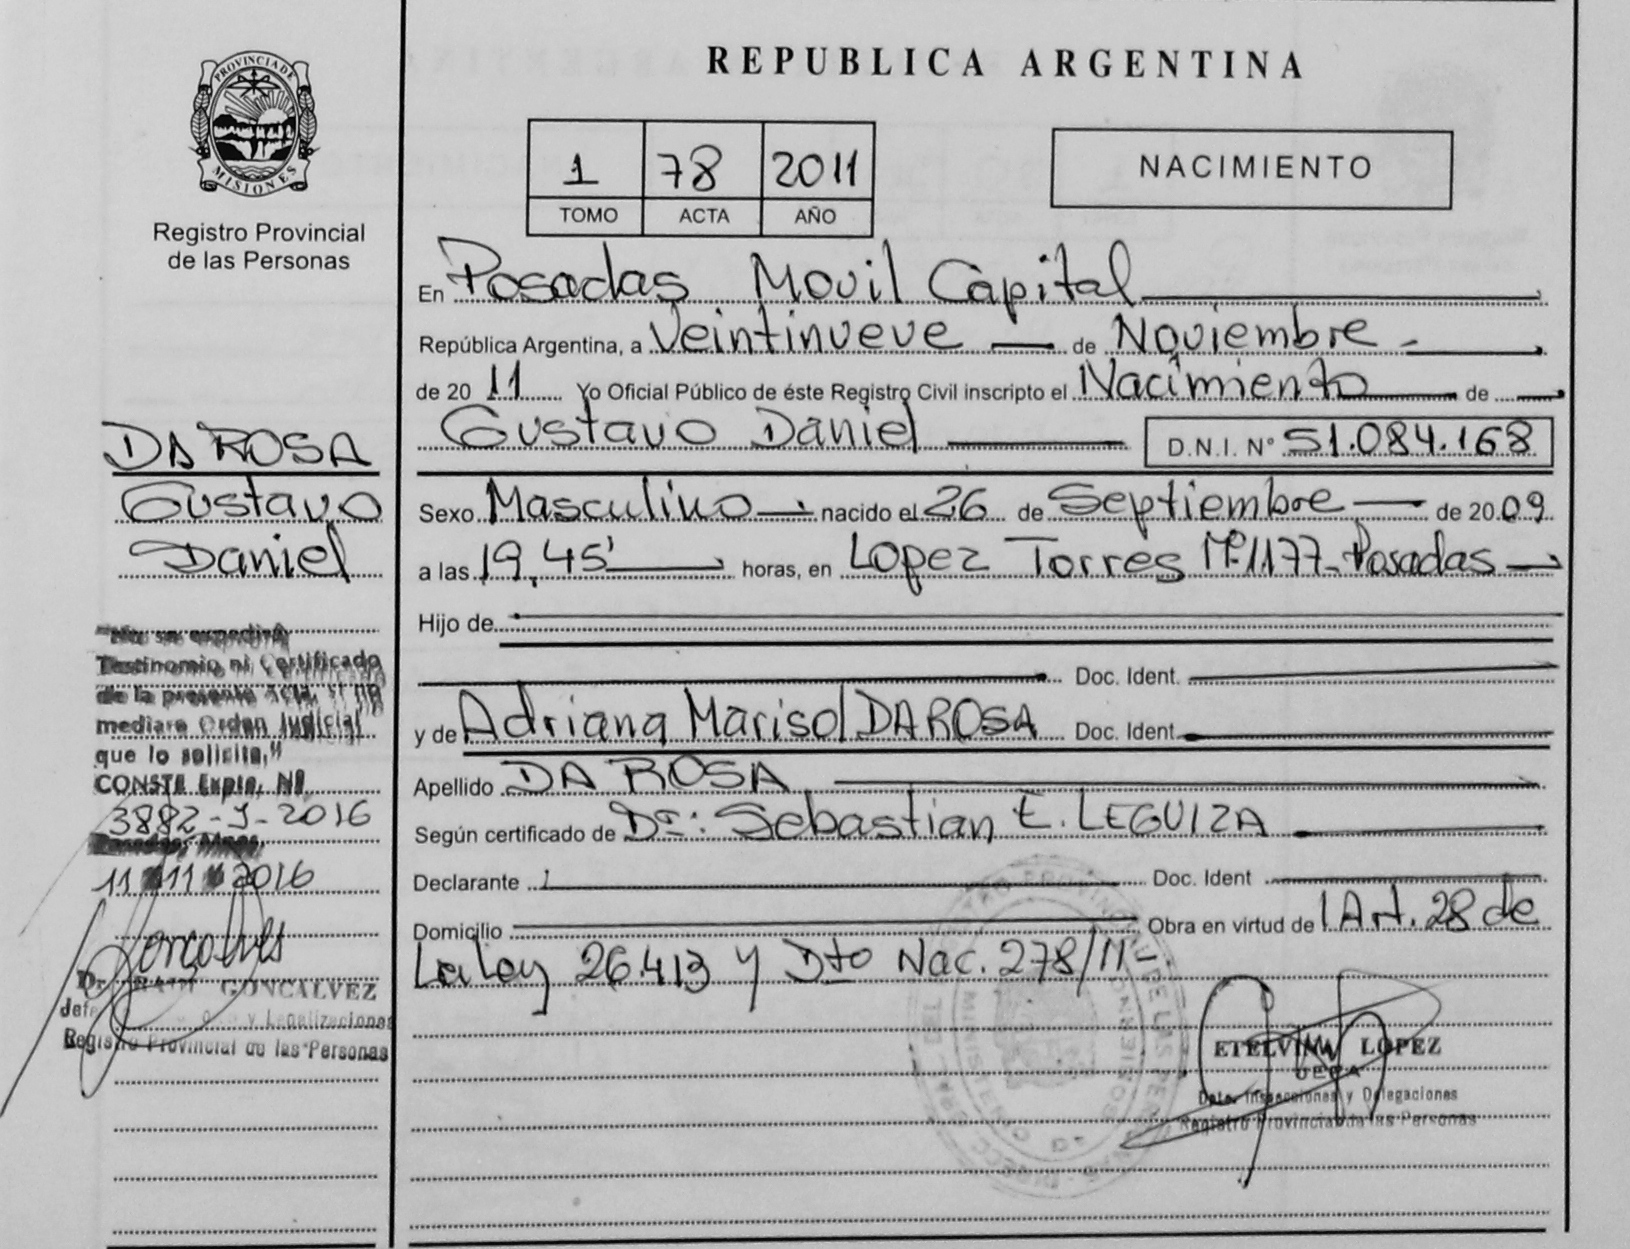 PROVINCIA DE
MISIONES
Registro Provincial
de las Personas
REPUBLICA ARGENTINA
1 78 2011
TOMO ACTA AÑO
NACIMIENTO
En Posadas Movil Capital
República Argentina, a Veintinueve de Noviembre
de 20 11 Yo Oficial Público de éste Registro Civil inscripto el Nacimiento de
Gustavo Daniel D.N.I. Nº 51.084.168
Sexo Masculino nacido el 26 de Septiembre de 20 09
a las 19,45' horas, en Lopez Torres Nº 1177 - Posadas
Hijo de
Doc. Ident.
y de Adriana Marisol DA ROSA Doc. Ident.
Apellido DA ROSA
Según certificado de Dr.: Sebastian E. LEGUIZA
Declarante Doc. Ident
Domicilio Obra en virtud de l Art. 28 de
La Ley 26.413 y Dto Nac. 278/11-.
ETELVINA LOPEZ
JEFA
Dpto. Inspecciones y Delegaciones
Registro Provincial de las Personas
DA ROSA
Gustavo
Daniel
"No se expedirá
Testimonio ni Certificado
de la presente Acta, si no
mediare Orden Judicial
que lo solicite,"
CONSTE Expte. Nº
3882-J-2016
Posadas, Mnes.
11 11 2016
Dr. GONCALVEZ
y Legalizaciones
Registro Provincial de las Personas